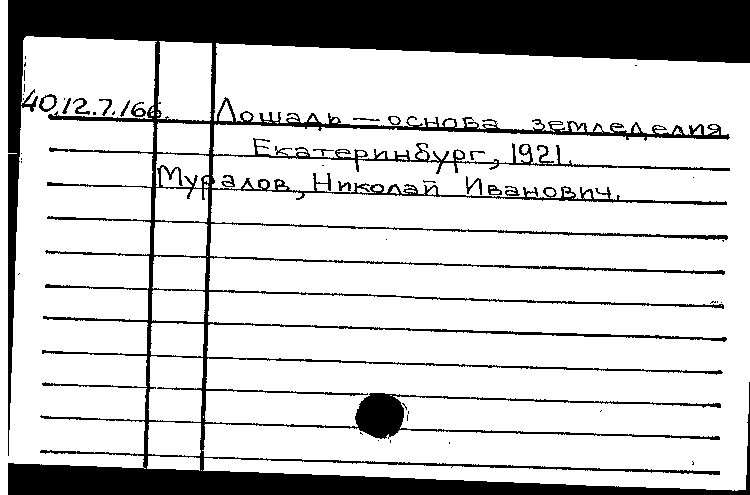 40.12.7.166. Лошадь — основа земледелия
Екатеринбург, 1921.
Муралов, Николай Иванович.